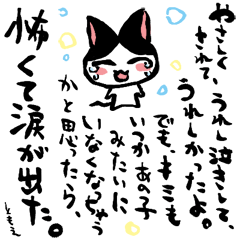 やさしく
されて、
うれし泣きして、
うれしかったよ。
でも、キミも
いつかあの子
みたいに
いなくなっちゃう
かと思ったら、
怖くて涙が出た。
ともこ